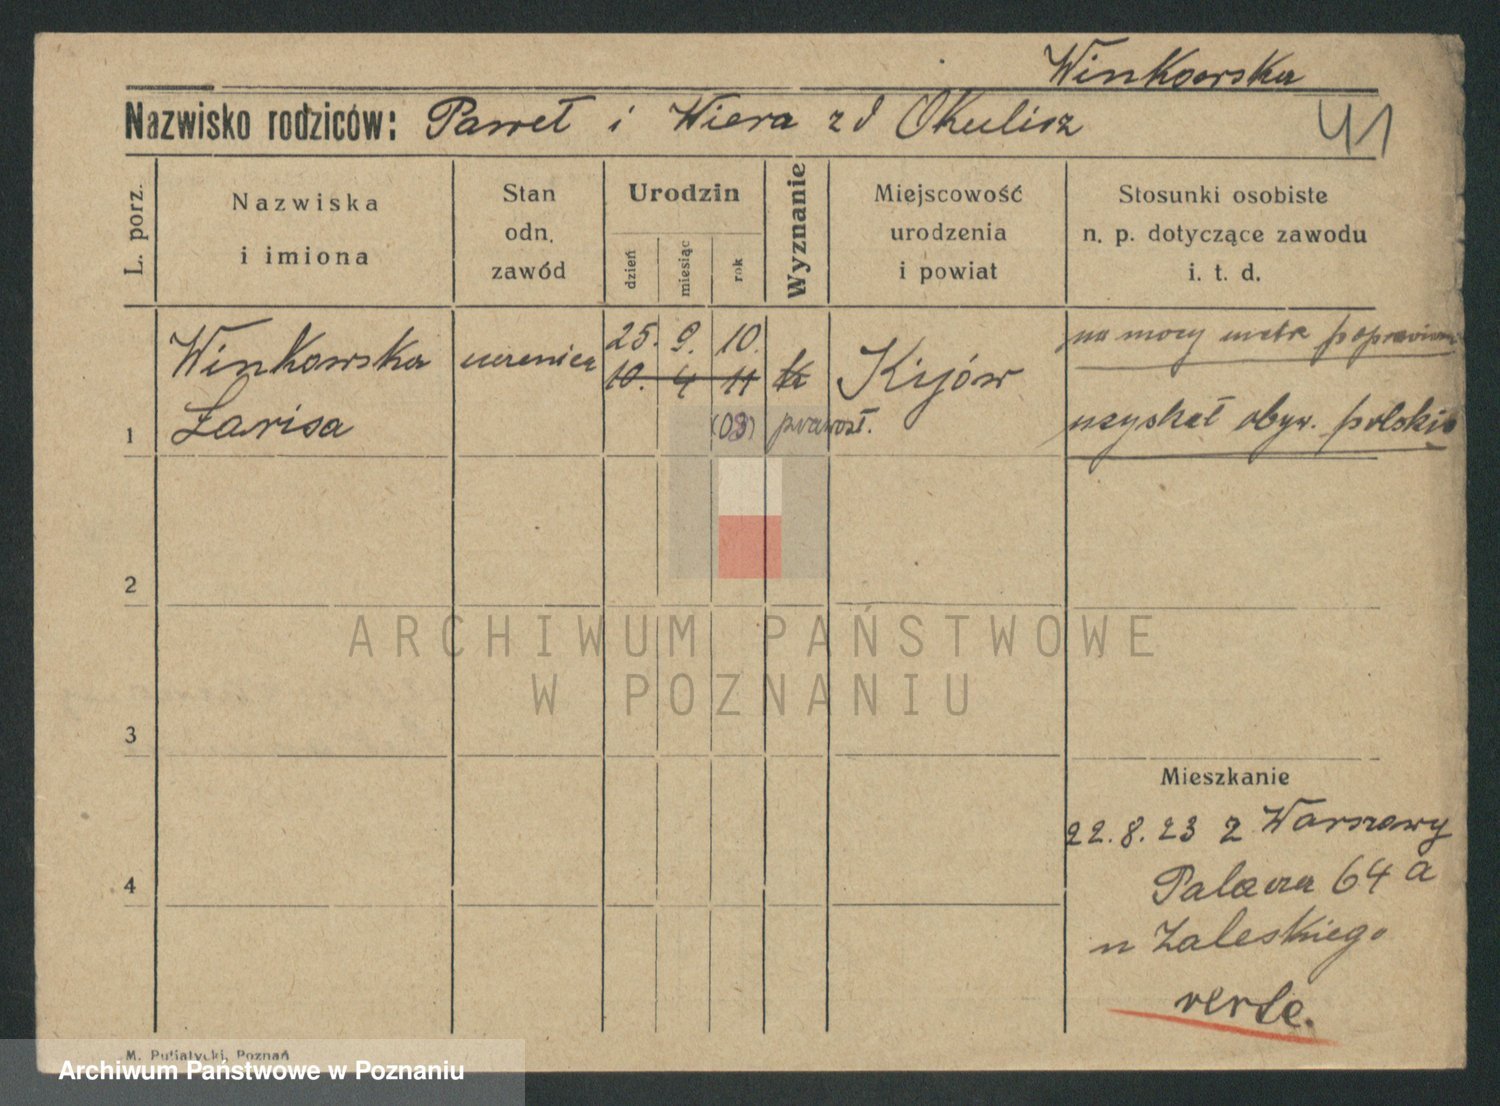 Winkowska
Nazwisko rodziców: Paweł i Wiera zd Okulisz
41
L. porz.
Nazwiska
i imiona
Stan
odn.
zawód
Urodzin
dzień
miesiąc
rok
Wyznanie
Miejscowość
urodzenia
i powiat
Stosunki osobiste
n. p. dotyczące zawodu
i. t. d.
1
Winkowska
Larisa
uczenica
25. 9. 10.
10. 4 11
(03)
prawosł.
Kijów
na mocy metr
uzyskał obyw. polskie
2
ARCHIWUM PAŃSTWOWE
W POZNANIU
3
Mieszkanie
22.8.23 z Warszawy
Palacza 64 a
u Zaleskiego
verte.
4
M. Putiatycki, Poznań
Archiwum Państwowe w Poznaniu